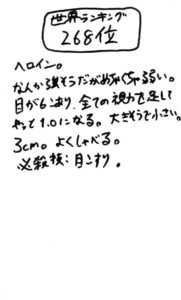 世界ランキング
268位
ヘロイン。
なんか強そうだがめちゃくちゃ弱い。
目が6こあり、全ての視力を足して
やっと1.0になる。大きそうで小さい。
3cm。よくしゃべる。
必殺技:目こすり。